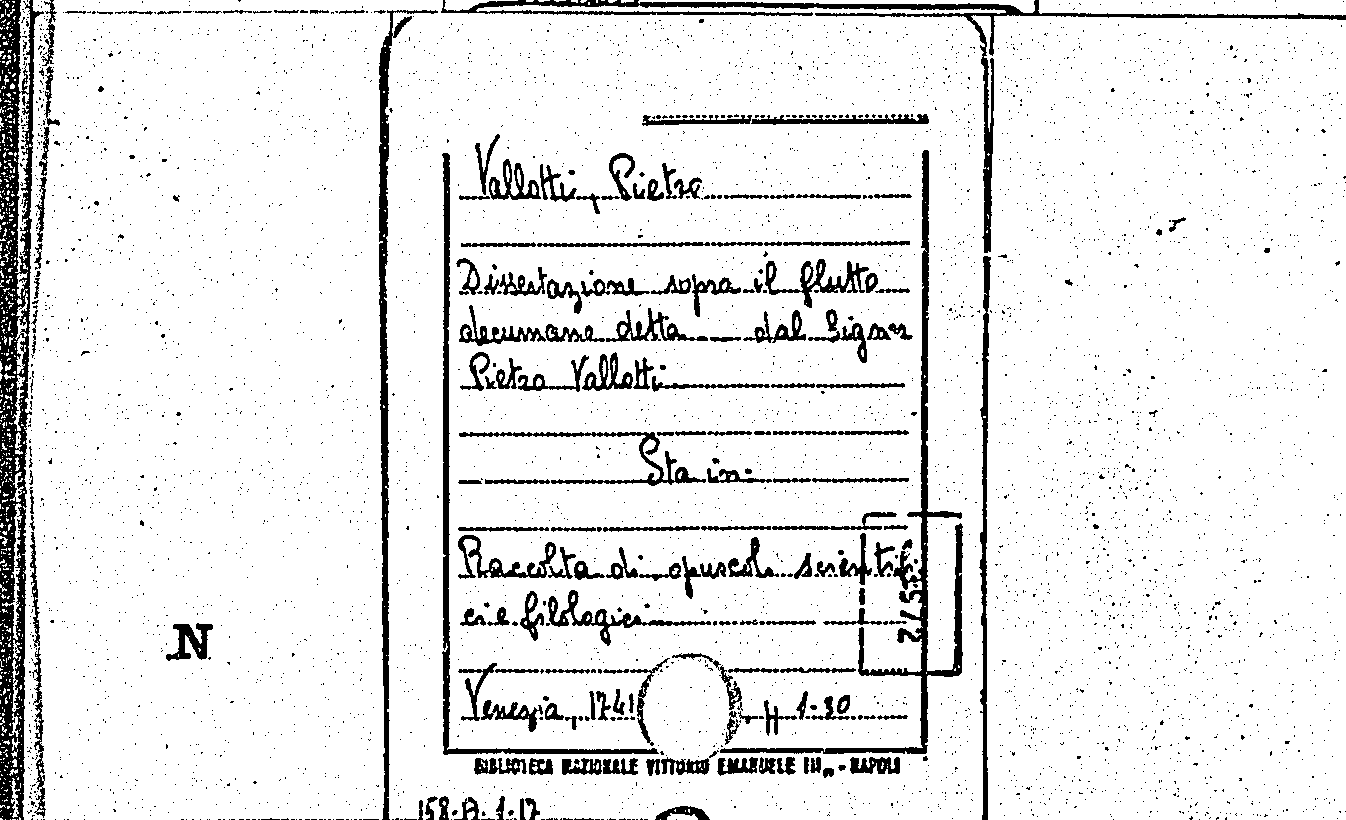 Vallotti, Pietro
Dissertazione sopra il flutto
decumano detta dal Signor
Pietro Vallotti
Sta in:
Raccolta di opuscoli scientifi
ci e filologici
N
Venezia, 1741 . H 1-30
BIBLIOTECA NAZIONALE VITTORIO EMANUELE III - NAPOLI